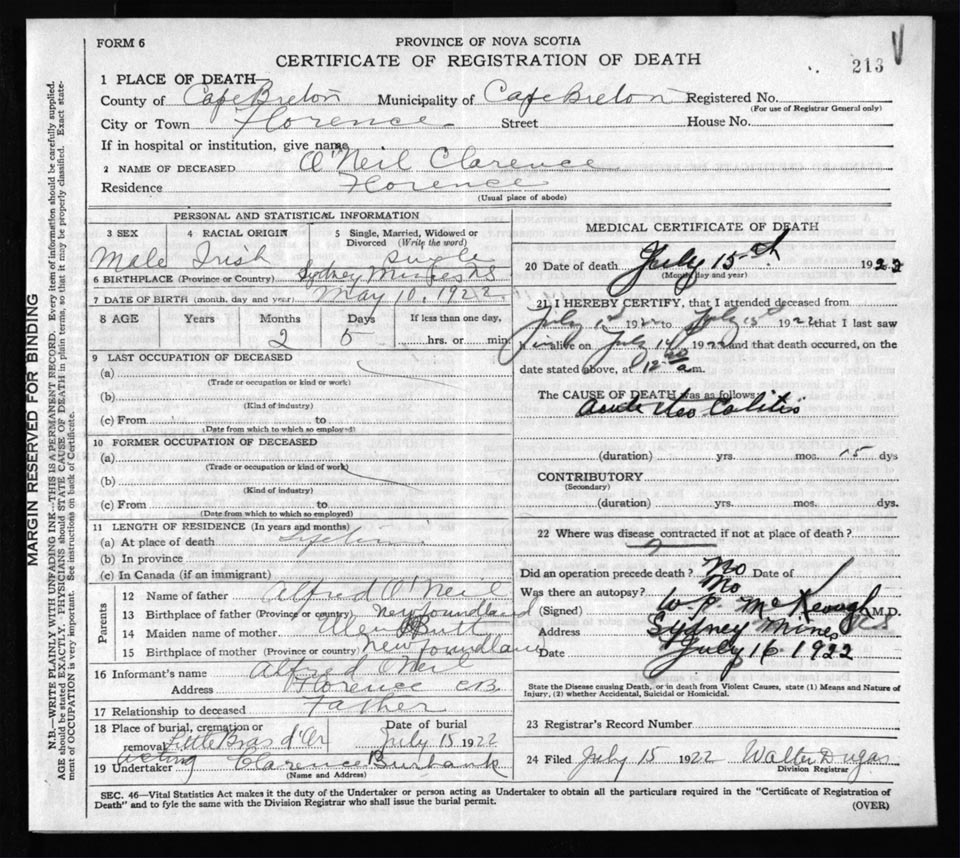 FORM 6
PROVINCE OF NOVA SCOTIA
CERTIFICATE OF REGISTRATION OF DEATH
213
1 PLACE OF DEATH—
County of Cape Breton Municipality of Cape Breton Registered No.
(For use of Registrar General only)
City or Town Florence Street House No.
If in hospital or institution, give name
2 NAME OF DECEASED O'Neil Clarence
Residence Florence
(Usual place of abode)
PERSONAL AND STATISTICAL INFORMATION
3 SEX 4 RACIAL ORIGIN 5 Single, Married, Widowed or Divorced (Write the word)
Male Irish Single
6 BIRTHPLACE (Province or Country) Sydney Mines NS
7 DATE OF BIRTH (month, day and year) May 10, 1922
8 AGE Years Months Days If less than one day,
2 5 hrs. or min.
9 LAST OCCUPATION OF DECEASED
(a)
(Trade or occupation or kind or work)
(b)
(Kind of industry)
(c) From to
(Date from which to which so employed)
10 FORMER OCCUPATION OF DECEASED
(a)
(Trade or occupation or kind of work)
(b)
(Kind of industry)
(c) From to
(Date from which to which so employed)
11 LENGTH OF RESIDENCE (In years and months)
(a) At place of death
(b) In province
(c) In Canada (if an immigrant)
Parents
12 Name of father Alfred O'Neil
13 Birthplace of father (Province or country) Newfoundland
14 Maiden name of mother Butt
15 Birthplace of mother (Province or country) Newfoundland
16 Informant's name Alfred O'Neil
Address Florence C.B.
17 Relationship to deceased Father
18 Place of burial, cremation or removal Little Bras d'Or Date of burial July 15 1922
acting
19 Undertaker Clarence Burbank
(Name and Address)
MEDICAL CERTIFICATE OF DEATH
20 Date of death July 15th 1922
(Month day and year)
21 I HEREBY CERTIFY, that I attended deceased from
July 1st 1922 to July 15th 1922 that I last saw
him alive on July 14 1922 and that death occurred, on the
date stated above, at 12 a.m.
The CAUSE OF DEATH was as follows
Acute Ileo Colitis
(duration) yrs. mos. 15 dys
CONTRIBUTORY
(Secondary)
(duration) yrs. mos. dys.
22 Where was disease contracted if not at place of death?
Did an operation precede death? No Date of
Was there an autopsy? No
(Signed) W. P. McKeough M.D.
Address Sydney Mines NS
Date July 16 1922
State the Disease causing Death, or in death from Violent Causes, state (1) Means and Nature of Injury, (2) whether Accidental, Suicidal or Homicidal.
23 Registrar's Record Number
24 Filed July 15 1922 Walter Dugas
Division Registrar
SEC. 46—Vital Statistics Act makes it the duty of the Undertaker or person acting as Undertaker to obtain all the particulars required in the "Certificate of Registration of
Death" and to fyle the same with the Division Registrar who shall issue the burial permit.
(OVER)
MARGIN RESERVED FOR BINDING
N.B.—WRITE PLAINLY WITH UNFADING INK—THIS IS A PERMANENT RECORD. Every item of information should be carefully supplied.
AGE should be stated EXACTLY. PHYSICIANS should STATE CAUSE OF DEATH in plain terms, so that it may be properly classified. Exact statement
of OCCUPATION is very important. See instructions on back of Certificate.